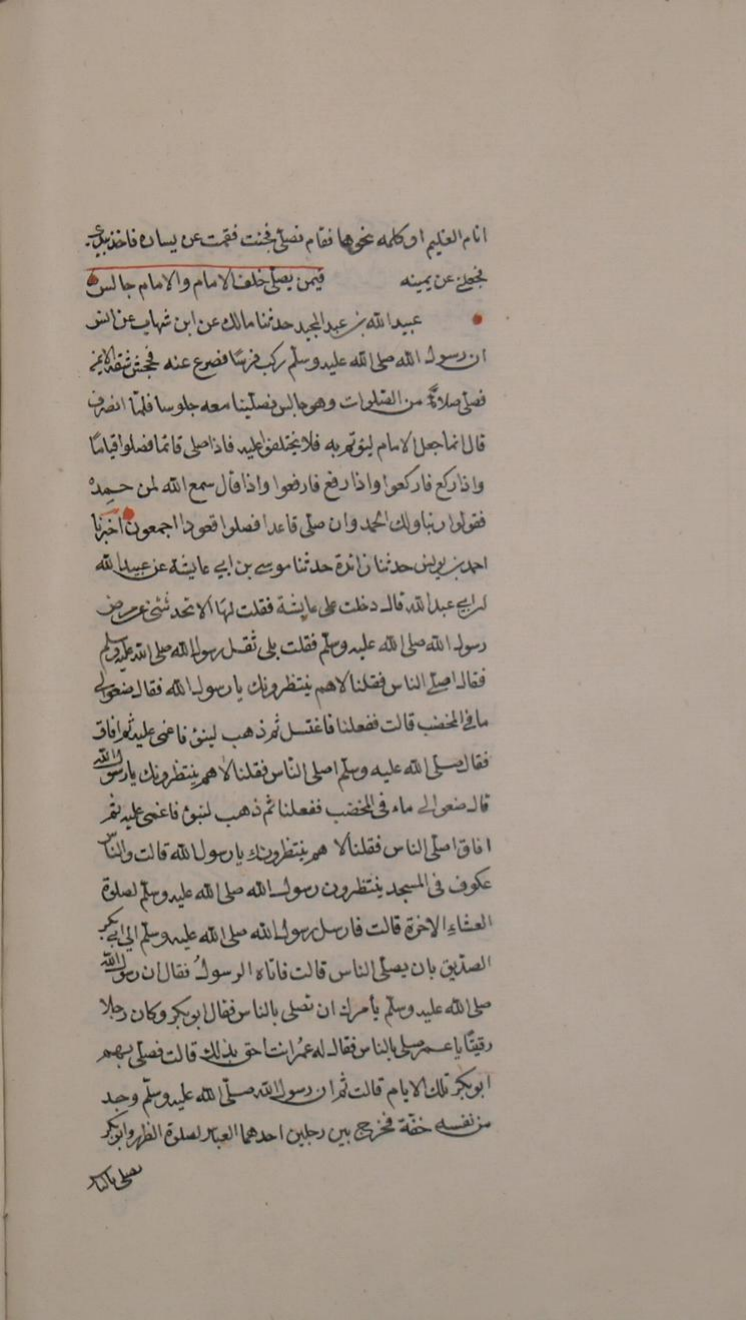 انام الغليم او كلمه نحوها فقام فصلى فجئت فقمت عن يساره فاخذ بيدى
فجعلنى عن يمينه فيمن يصلى خلف الامام والامام جالس
عبيد الله بن عبد المجيد حدثنا مالك عن ابن شهاب عن انس
ان رسول الله صلى الله عليه وسلم ركب فرسا فصرع عنه فجحش شقه الايمن
فصلى صلاة من الصلوات وهو جالس فصلينا معه جلوسا فلما انصرف
قال انما جعل الامام ليؤتم به فلا تختلفوا عليه فاذا صلى قائما فصلوا قياما
واذا ركع فاركعوا واذا رفع فارفعوا واذا قال سمع الله لمن حمده
فقولوا ربنا ولك الحمد وان صلى قاعدا فصلوا قعودا اجمعون اخبرنا
احمد بن يونس حدثنا زائدة حدثنا موسى بن ابي عايشة عن عبيد الله
بن عبد الله قال دخلت على عايشة فقلت لها الا تحدثنى عن مرض
رسول الله صلى الله عليه وسلم فقلت بلى ثقل رسول الله صلى الله عليه وسلم
فقال اصلى الناس فقلنا لا هم ينتظرونك يا رسول الله فقال ضعوا لي
ما في المخضب قالت ففعلنا فاغتسل ثم ذهب لينؤ فاغمى عليه ثم افاق
فقال صلى الله عليه وسلم اصلى الناس فقلنا لا هم ينتظرونك يا رسول الله
قال ضعوا لي ماء في المخضب ففعلنا ثم ذهب لينؤ فاغمى عليه ثم
افاق اصلى الناس فقلنا لا هم ينتظرونك يا رسول الله قالت والناس
عكوف في المسجد ينتظرون رسول الله صلى الله عليه وسلم لصلوة
العشاء الاخرة قالت فارسل رسول الله صلى الله عليه وسلم الى ابي بكر
الصديق بان يصلى الناس قالت فاتاه الرسول فقال ان رسول الله
صلى الله عليه وسلم يأمرك ان تصلى بالناس فقال ابو بكر وكان رجلا
رقيقا يا عمر صلى بالناس فقال له عمر انت احق بذلك قالت فصلى بهم
ابو بكر تلك الايام قالت ثم ان رسول الله صلى الله عليه وسلم وجد
من نفسه خفة فخرج بين رجلين احدهما العباس لصلوة الظهر وابو بكر
يصلى بالناس